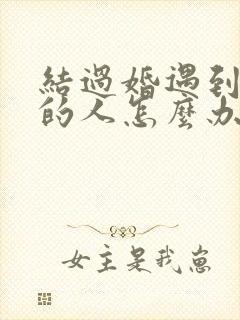 結過婚遇到
的人怎麼办
女主是我崽